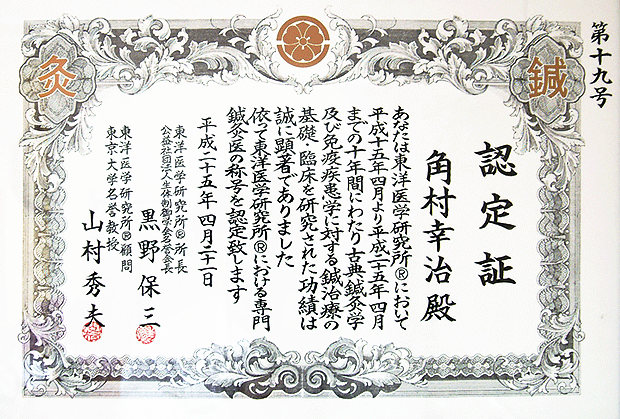 第十九号
鍼
灸
認定証
角村幸治殿
あなたは東洋医学研究所®において
平成十五年四月より平成二十五年四月
までの十年間にわたり古典鍼灸学
及び免疫疾患学に対する鍼治療の
基礎・臨床を研究された功績は
誠に顕著でありました
依って東洋医学研究所®における専門
鍼灸医の称号を認定致します
平成二十五年四月二十一日
東洋医学研究所®所長
公益社団法人生体制御学会名誉会長
黒野保三
東洋医学研究所®顧問
東京大学名誉教授
山村秀夫